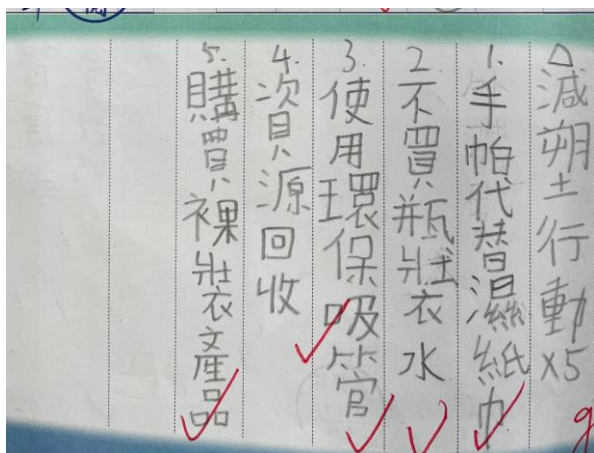 △減塑行動x5
1.手帕代替濕紙巾
2.不買瓶裝水
3.使用環保吸管
4.資源回收
5.購買裸裝產品